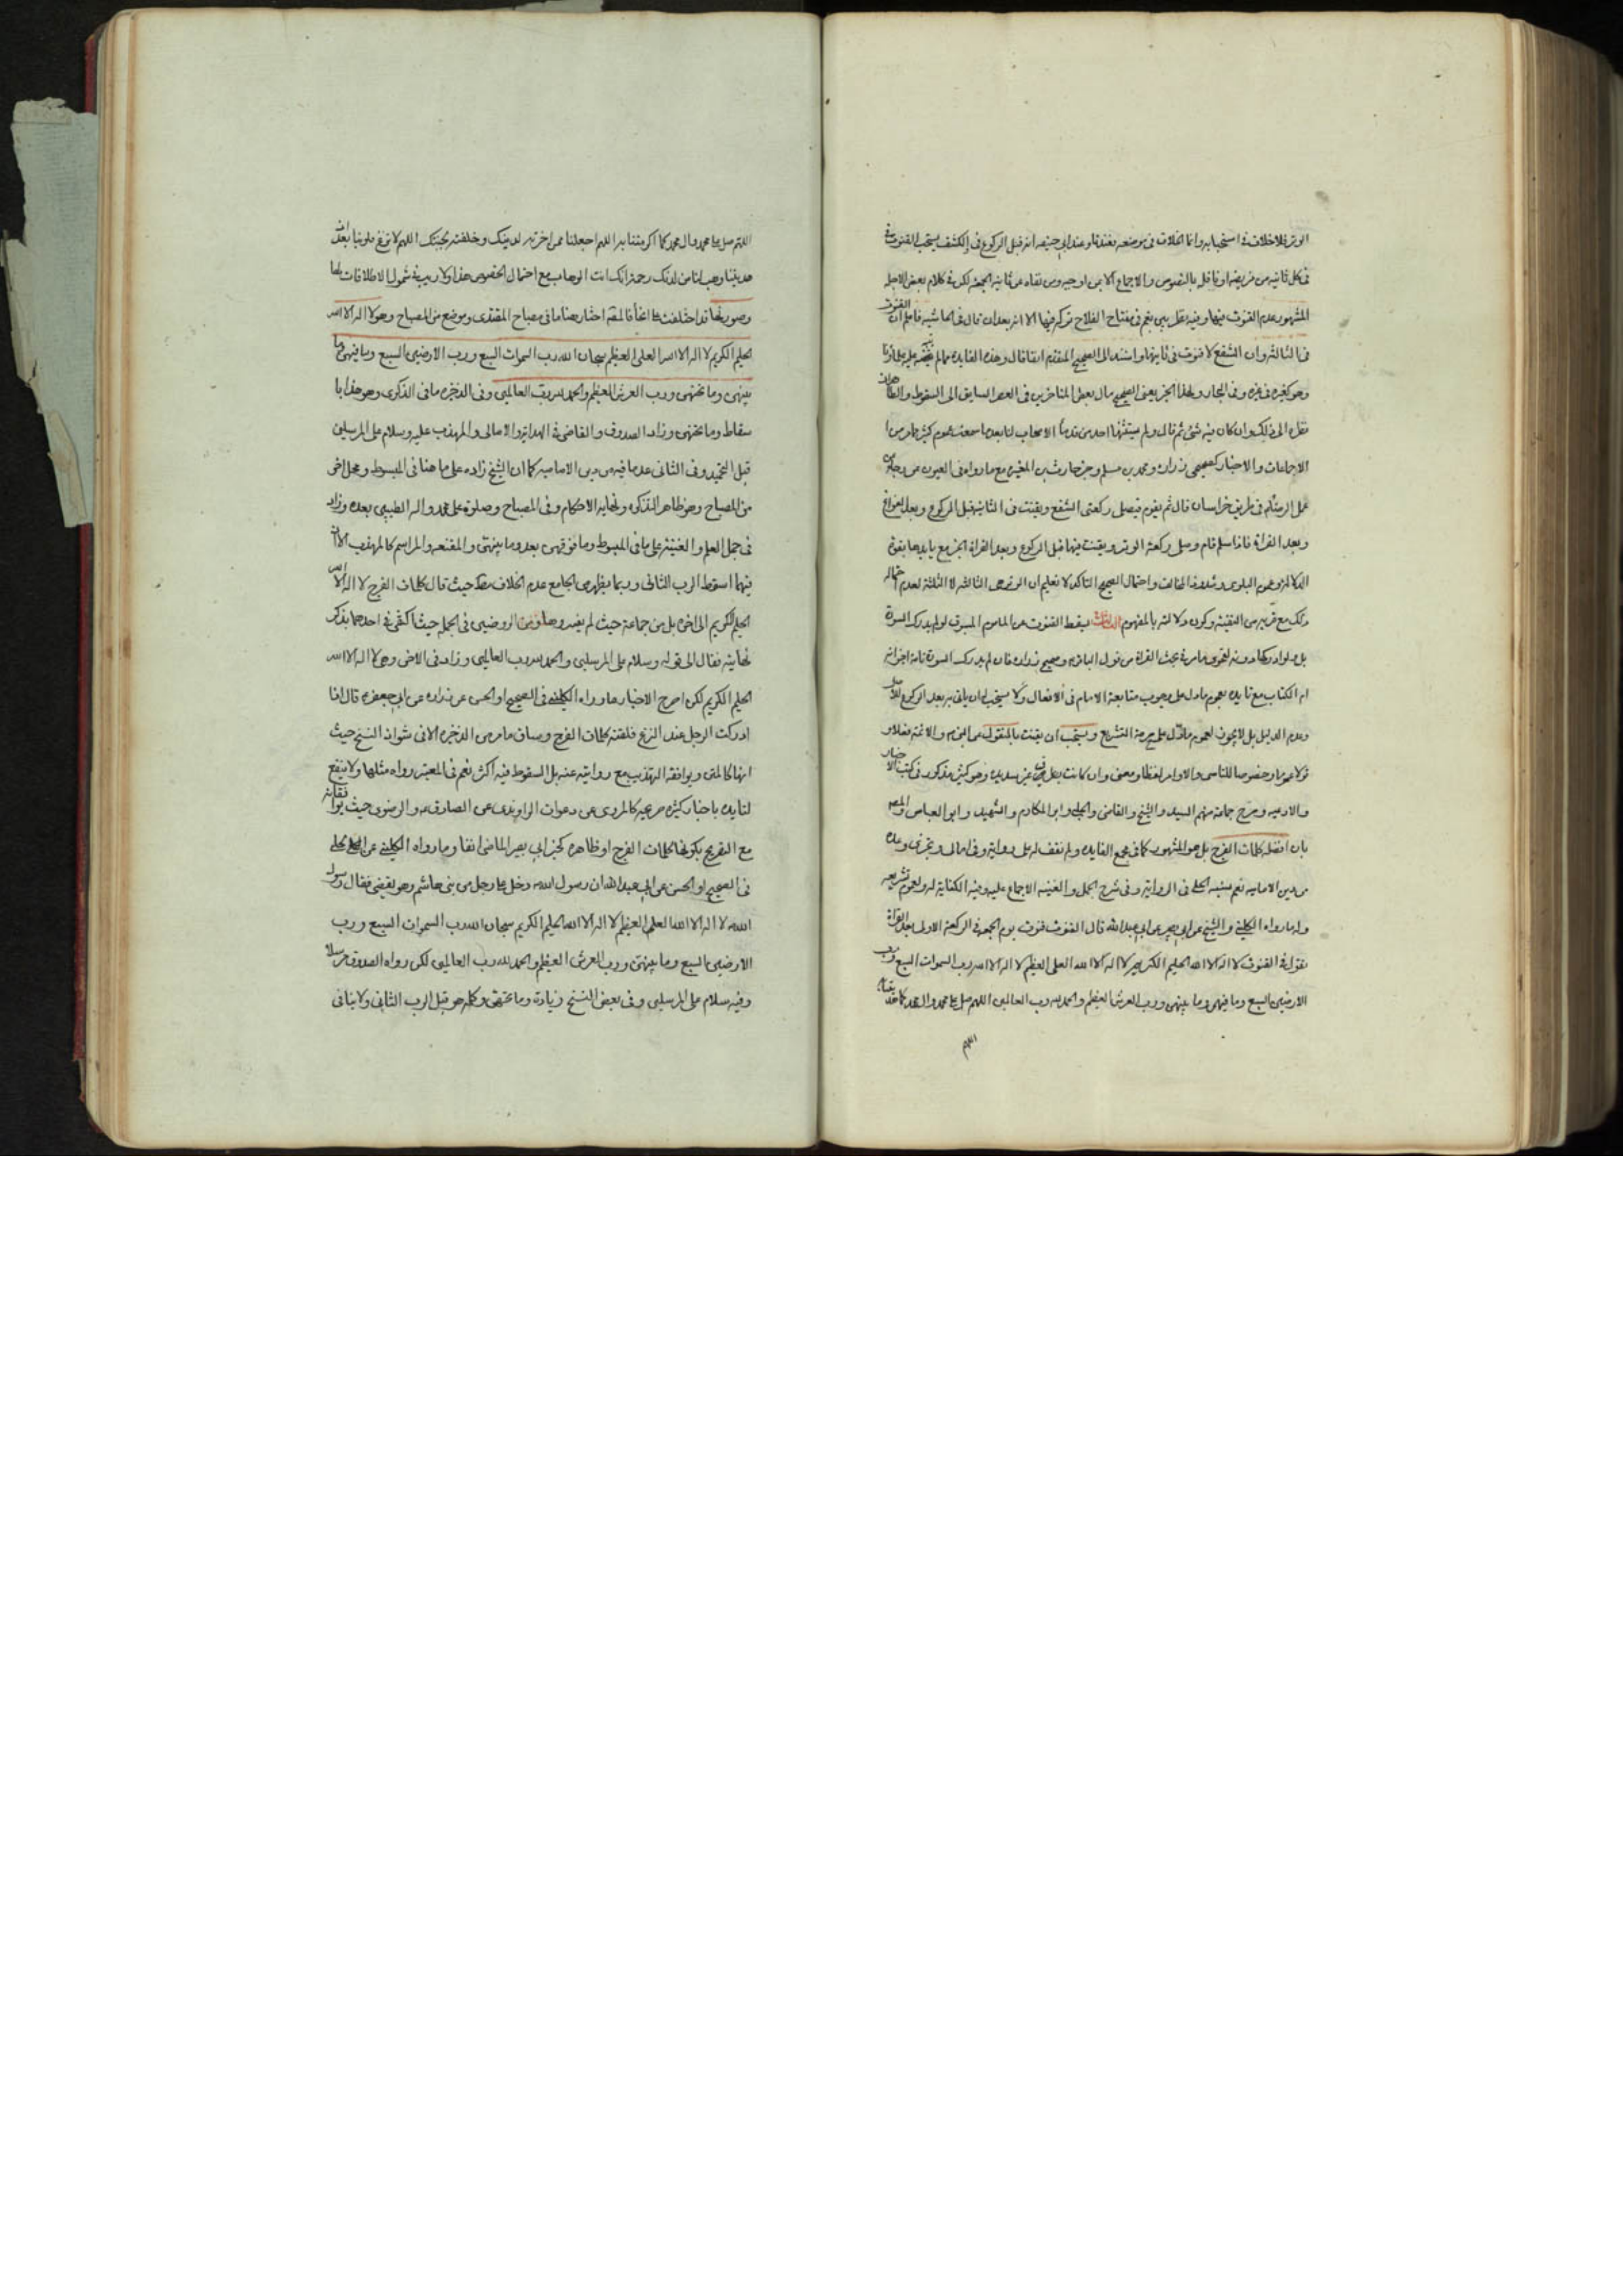 الوتر فلا خلاف في استحبابه وانما الخلاف في موضعه فعندنا وعند ابي حنيفه انه قبل الركوع وفي الكشف يستحب القنوت
في كل ثانيه من فريضه او نافله بالنصوص والاجماع الا من اوجبه ومن نفاه عن ثانية الجمعه لكن في كلام بعض الاجله
المشهور عدم القنوت فيها وفيه نظر بين نعم في مفتاح الفلاح تركه فيها الا انه بعد ان قال في الحاشيه فاعلم ان القنوت
في الثالثه وان الشفع لا قنوت في ثانيتها واستند الى الصحيح المتقدم انفا قال وهذه الفايده مما لم يتنبه عليها
وهو كغيره في غيره وفي البحار ولهذا الخبر يعني الصحيح مال بعض المتاخرين في العصر السابق الى السقوط
ذلك وان كان فيه شئ ثم قال ولم يستثنها احد من قدماء الاصحاب لنا بعد ما سمعت عموم كثير مما مر من
الاجماعات والاخبار كصحيحي زراره ومحمد بن مسلم وخبر حارث بن المغيره مع ما رواه في العيون عن رجاء
عمل الرضا في طريق خراسان قال ثم يقوم فيصلي ركعتي الشفع ويقنت في الثانيه قبل الركوع وبعد القراءة
وبعد القراة فاذا سلم قام وصلى ركعة الوتر ويقنت فيها قبل الركوع وبعد القراة الخبر مع تاييدها بقوة
الدلاله وعموم البلوى وشذوذ المخالف واحتمال الصحيح التاكد لا تعليم ان الوتر هي الثالثه لا الثلثه لعدم
ذلك مع قربه من التقيه وكون دلالته بالمفهوم الثالث يسقط القنوت عن الماموم المسبوق لو لم يدرك السورة
بل ولو ادركها دونه لفحوى ما مر في بحث القراة من قول الباقر في صحيح زراره فان لم يدرك السورة تامة اجزاته
ام الكتاب مع تاييده بعموم ما دل على وجوب متابعة الامام في الافعال ولا يستحب له ان ياتي به بعد الركوع
وعدم الدليل بل لا يجوز لعموم ما دل على حرمة التشريع ويستحب ان يقنت بالمنقول عن النبي والائمة فعلا و
قولا عموما وخصوصا للتاسي والاوامر لفظا ومعنى وان كانت غير سديده وهو كثير مذكور في كتب الاخبار
والادعيه وصرح جماعة منهم السيد والشيخ والقاضي والحلي وابو المكارم والشهيد وابو العباس والمصنف
بان افضله كلمات الفرج بل هو المشهور كما في مجمع الفايده ولم نقف له على رواية وفي امالي
من دين الاماميه نعم نسبه الحلي الى الرواية وفي شرح الجمل والغنيه الاجماع عليه وفيه الكفاية له
وله ما رواه الكليني والشيخ عن ابي بصير عن ابي عبدالله قال القنوت قنوت يوم الجمعه في الركعة الاولى بعد القراة
تقول في القنوت لا اله الا الله الحليم الكريم لا اله الا الله العلي العظيم لا اله الا الله رب السموات السبع ورب
الارضين السبع وما فيهن وما بينهن ورب العرش العظيم والحمد لله رب العالمين اللهم صل على محمد وال محمد كما هديتنا به
اللهم
اللهم صل على محمد وال محمد كما اكرمتنا به اللهم اجعلنا ممن اخترته لدينك وخلقته لجنتك اللهم لا تزغ قلوبنا بعد اذ
هديتنا وهب لنا من لدنك رحمة انك انت الوهاب مع احتمال الخصوص هذا ولا ريب في شمول الاطلاقات لها
وصورتها قد اختلفت على انحاء فالمصنف اختار هنا ما في مصباح المقتدي وموضع من المصباح وهو لا اله الا الله
الحليم الكريم لا اله الا الله العلي العظيم سبحان الله رب السموات السبع ورب الارضين السبع وما فيهن وما
بينهن وما تحتهن ورب العرش العظيم والحمد لله رب العالمين وفي الذخيره ما في الذكرى وهو هذا با
سقاط وما تحتهن وزاد الصدوق والقاضي في الهداية والامالي والمهذب عليه وسلام على المرسلين
قبل التحميد وفي الثاني عد ما فيه من دين الاماميه كما ان الشيخ زاده على ما هنا في المبسوط ومحل اخر
من المصباح وهو ظاهر التذكره ونهاية الاحكام وفي المصباح وصلوة على محمد واله الطيبين بعده وزاد
في جمل العلم والغنيه على ما في المبسوط وما فوقهن بعد وما بينهن والمقنعه والمراسم كالمهذب الا ان
فيهما اسقط الرب الثاني وربما يظهر من الجامع عدم الخلاف حيث قال كلمات الفرج لا اله الا الله
الحليم الكريم الى اخره بل من جماعة حيث لم يفسروها ومن الروضتين في الجمله حيث اكتفي في احدهما بذكر
نهايته فقال الى قوله وسلام على المرسلين والحمد لله رب العالمين وزاد في الاخرى وهي لا اله الا الله
الحليم الكريم لكن اصرح الاخبار ما رواه الكليني في الصحيح او الحسن عن زراره عن ابي جعفر قال اذا
ادركت الرجل عند النزع فلقنه كلمات الفرج وساق ما مر من الذخيره الا في شواذ النسخ حيث
انها كالمتن ويوافقه التهذيب مع روايته عنه بل السقوط فيه اكثر نعم في المعتبر رواه مثلها ولا ينفع
لتاييده باخبار كثيره صريحه كالمروي عن دعوات الراوندي عن الصادق والرضوي حيث يوافقانه
مع التصريح بكونها كلمات الفرج او ظاهره كخبر ابي بصير الماضي انفا وما رواه الكليني عن الحلبي
في الصحيح او الحسن عن ابي عبدالله ان رسول الله دخل على رجل من بني هاشم وهو يقضي فقال له رسول
الله قل لا اله الا الله العلي العظيم لا اله الا الله الحليم الكريم سبحان الله رب السموات السبع ورب
الارضين السبع وما بينهن ورب العرش العظيم والحمد لله رب العالمين لكن رواه الصدوق مرسلا
وفيه سلام على المرسلين وفي بعض النسخ زيادة وما تحتهن وكله هو قبل الرب الثاني ولا ينافي